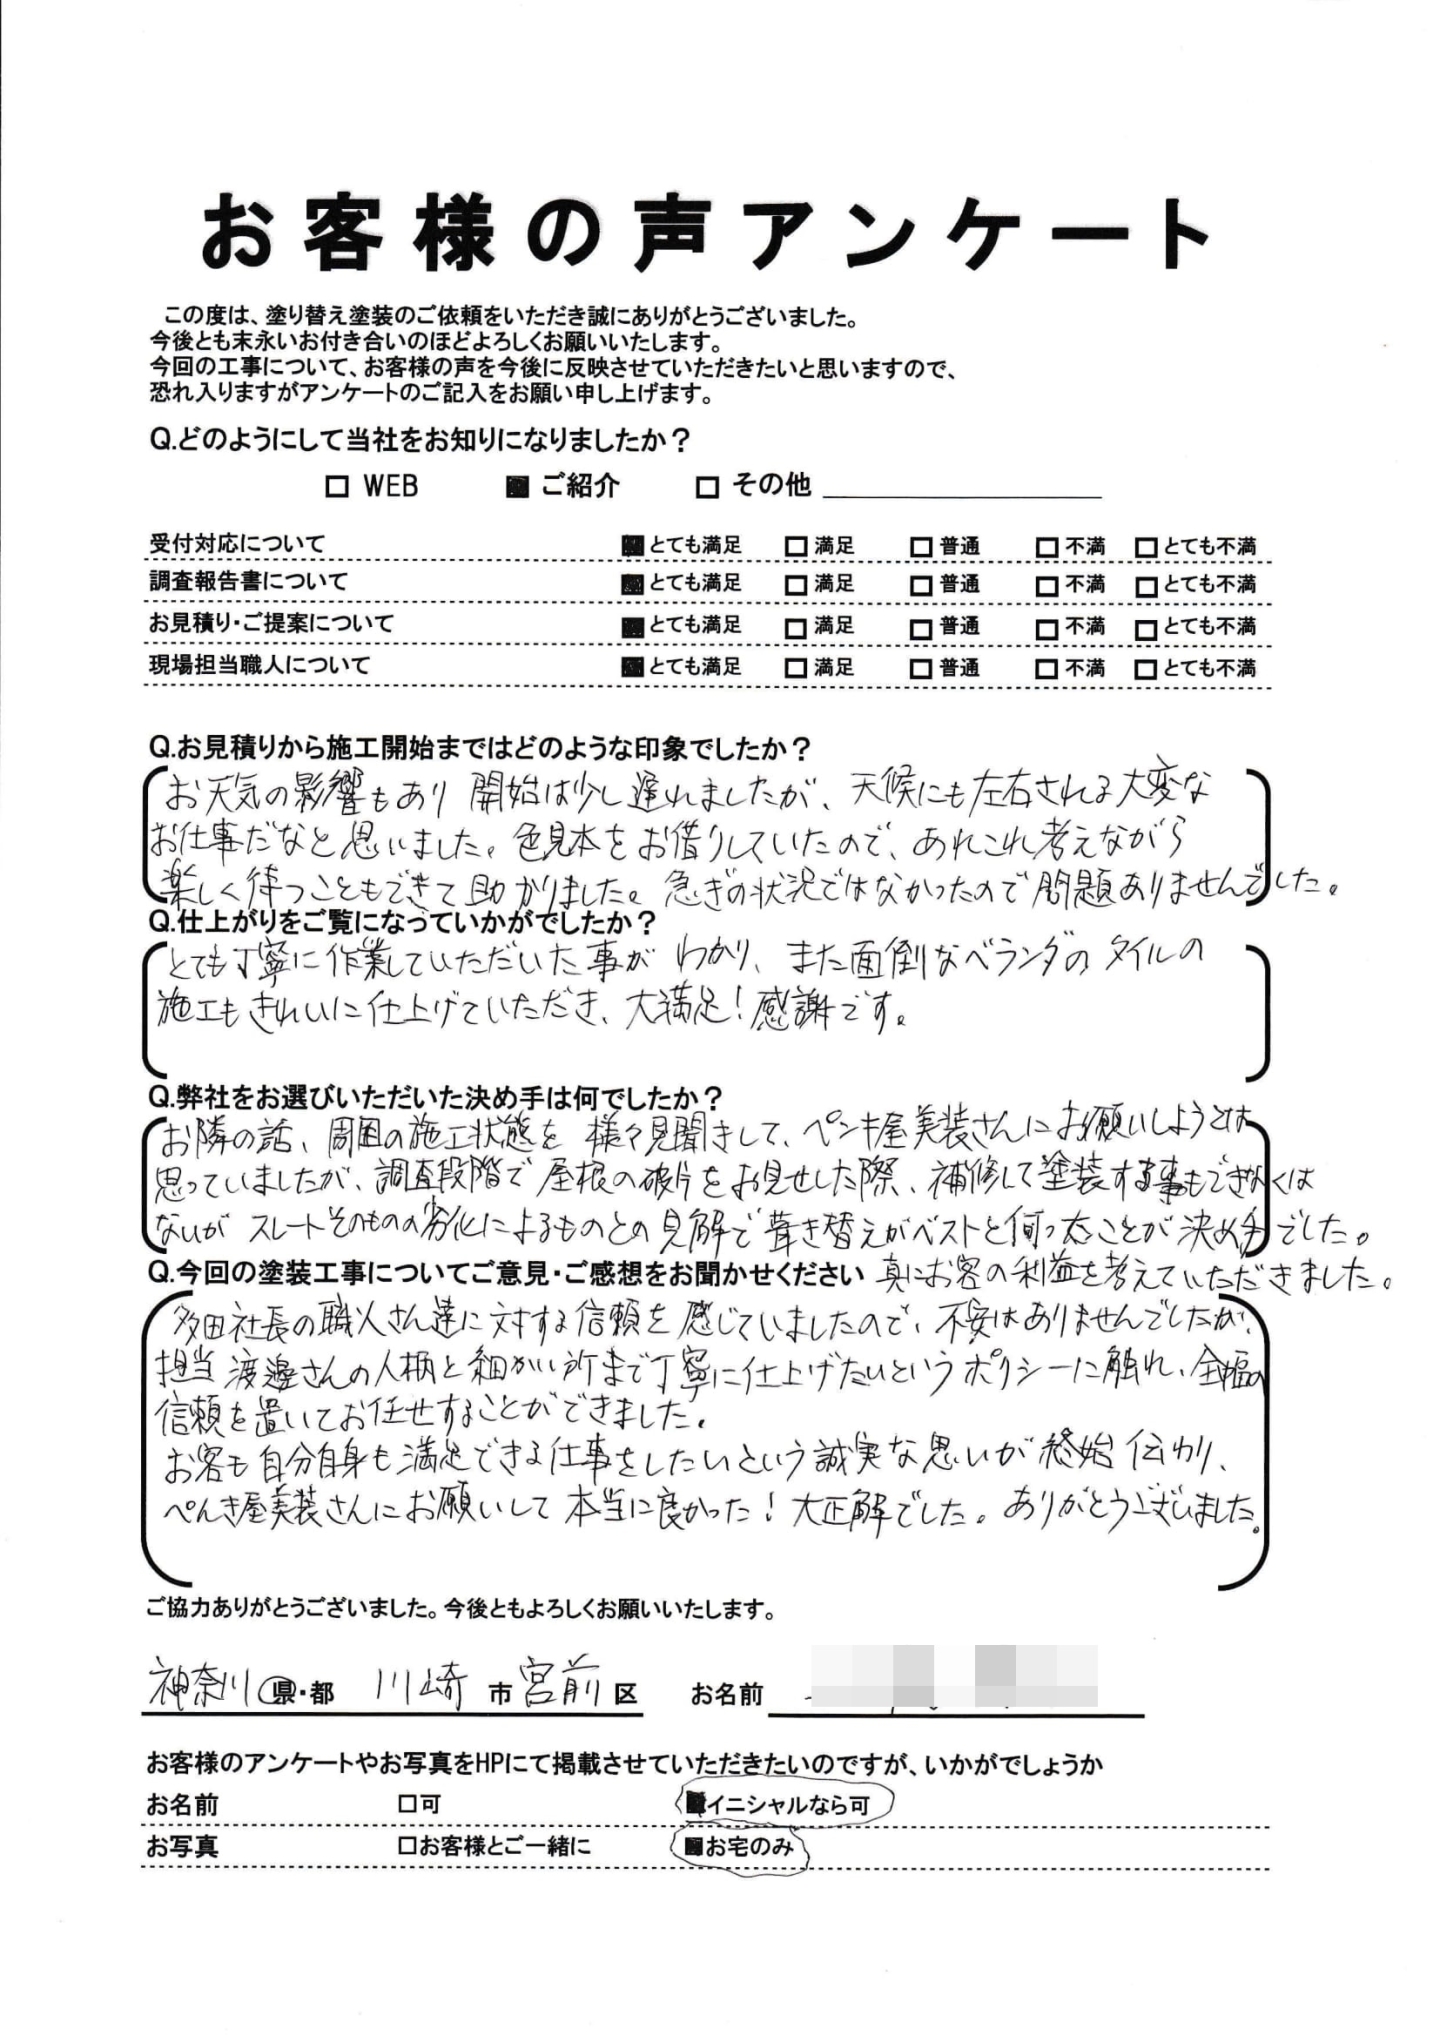 お客様の声アンケート
この度は、塗り替え塗装のご依頼をいただき誠にありがとうございました。
今後とも末永いお付き合いのほどよろしくお願いいたします。
今回の工事について、お客様の声を今後に反映させていただきたいと思いますので、
恐れ入りますがアンケートのご記入をお願い申し上げます。
Q.どのようにして当社をお知りになりましたか?
□ WEB ■ ご紹介 □ その他
受付対応について ■とても満足 □満足 □普通 □不満 □とても不満
調査報告書について ■とても満足 □満足 □普通 □不満 □とても不満
お見積り・ご提案について ■とても満足 □満足 □普通 □不満 □とても不満
現場担当職人について ■とても満足 □満足 □普通 □不満 □とても不満
Q.お見積りから施工開始まではどのような印象でしたか?
お天気の影響もあり 開始は少し遅れましたが、天候にも左右される大変な
お仕事だなと思いました。色見本をお借りしていたので、あれこれ考えながら
楽しく待つこともできて助かりました。急ぎの状況ではなかったので問題ありませんでした。
Q.仕上がりをご覧になっていかがでしたか?
とても丁寧に作業していただいた事が わかり、また面倒なベランダのタイルの
施工もきれいに仕上げていただき、大満足!感謝です。
Q.弊社をお選びいただいた決め手は何でしたか?
お隣の話、周囲の施工状態を 様々見聞きして、ペンキ屋美装さんにお願いしようとは
思っていましたが、調査段階で屋根の破片をお見せした際、補修して塗装する事もできなくは
ないが スレートそのものの劣化によるものとの見解で葺き替えがベストと伺ったことが決め手でした。
Q.今回の塗装工事についてご意見・ご感想をお聞かせください 真にお客の利益を考えていただきました。
多田社長の職人さん達に対する信頼を感じていましたので、不安はありませんでしたが、
担当 渡邊さんの人柄と細かい所まで丁寧に仕上げたいというポリシーに触れ、全幅の
信頼を置いてお任せすることができました。
お客も自分自身も満足できる仕事をしたいという誠実な思いが終始伝わり、
ぺんき屋美装さんにお願いして本当に良かった!大正解でした。ありがとうございました。
ご協力ありがとうございました。今後ともよろしくお願いいたします。
神奈川 県・都 川崎 市 宮前 区 お名前
お客様のアンケートやお写真をHPにて掲載させていただきたいのですが、いかがでしょうか
お名前 □可 ■イニシャルなら可
お写真 □お客様とご一緒に ■お宅のみ